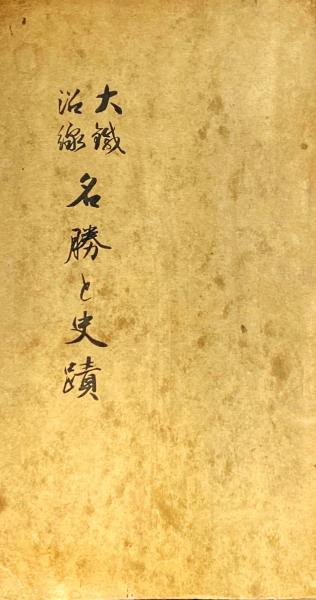 大鐵
沿線
名勝と史蹟